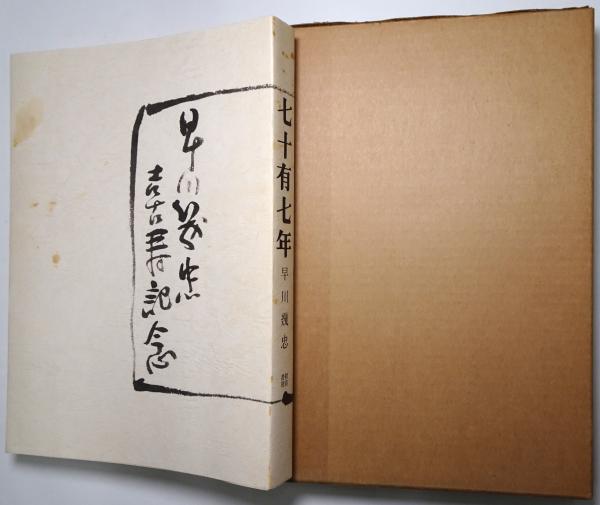 七十有七年
早川幾忠
早川幾忠
喜寿記念